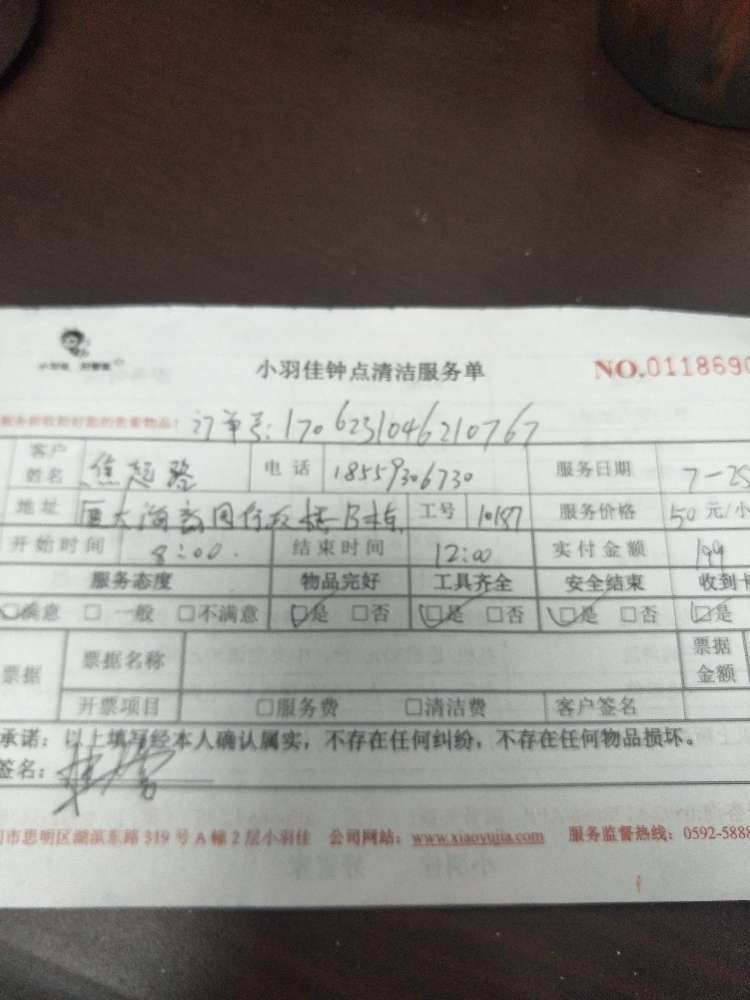 小羽佳 好管家
小羽佳钟点清洁服务单 NO.0118690
订单号:1706231046210767
客户姓名 电话 18559306730 服务日期 7-25
地址 工号 10187 服务价格 50元/小
开始时间 8:00 结束时间 12:00 实付金额 199
服务态度 物品完好 工具齐全 安全结束 收到卡
□满意 □一般 □不满意 □是 □否 □是 □否 □是 □否 □是
票据 票据名称 票据金额
开票项目 □服务费 □清洁费 客户签名
承诺:以上填写经本人确认属实,不存在任何纠纷,不存在任何物品损坏。
签名:
市思明区湖滨东路319号A幢2层小羽佳 公司网站:www.xiaoyujia.com 服务监督热线:0592-5888